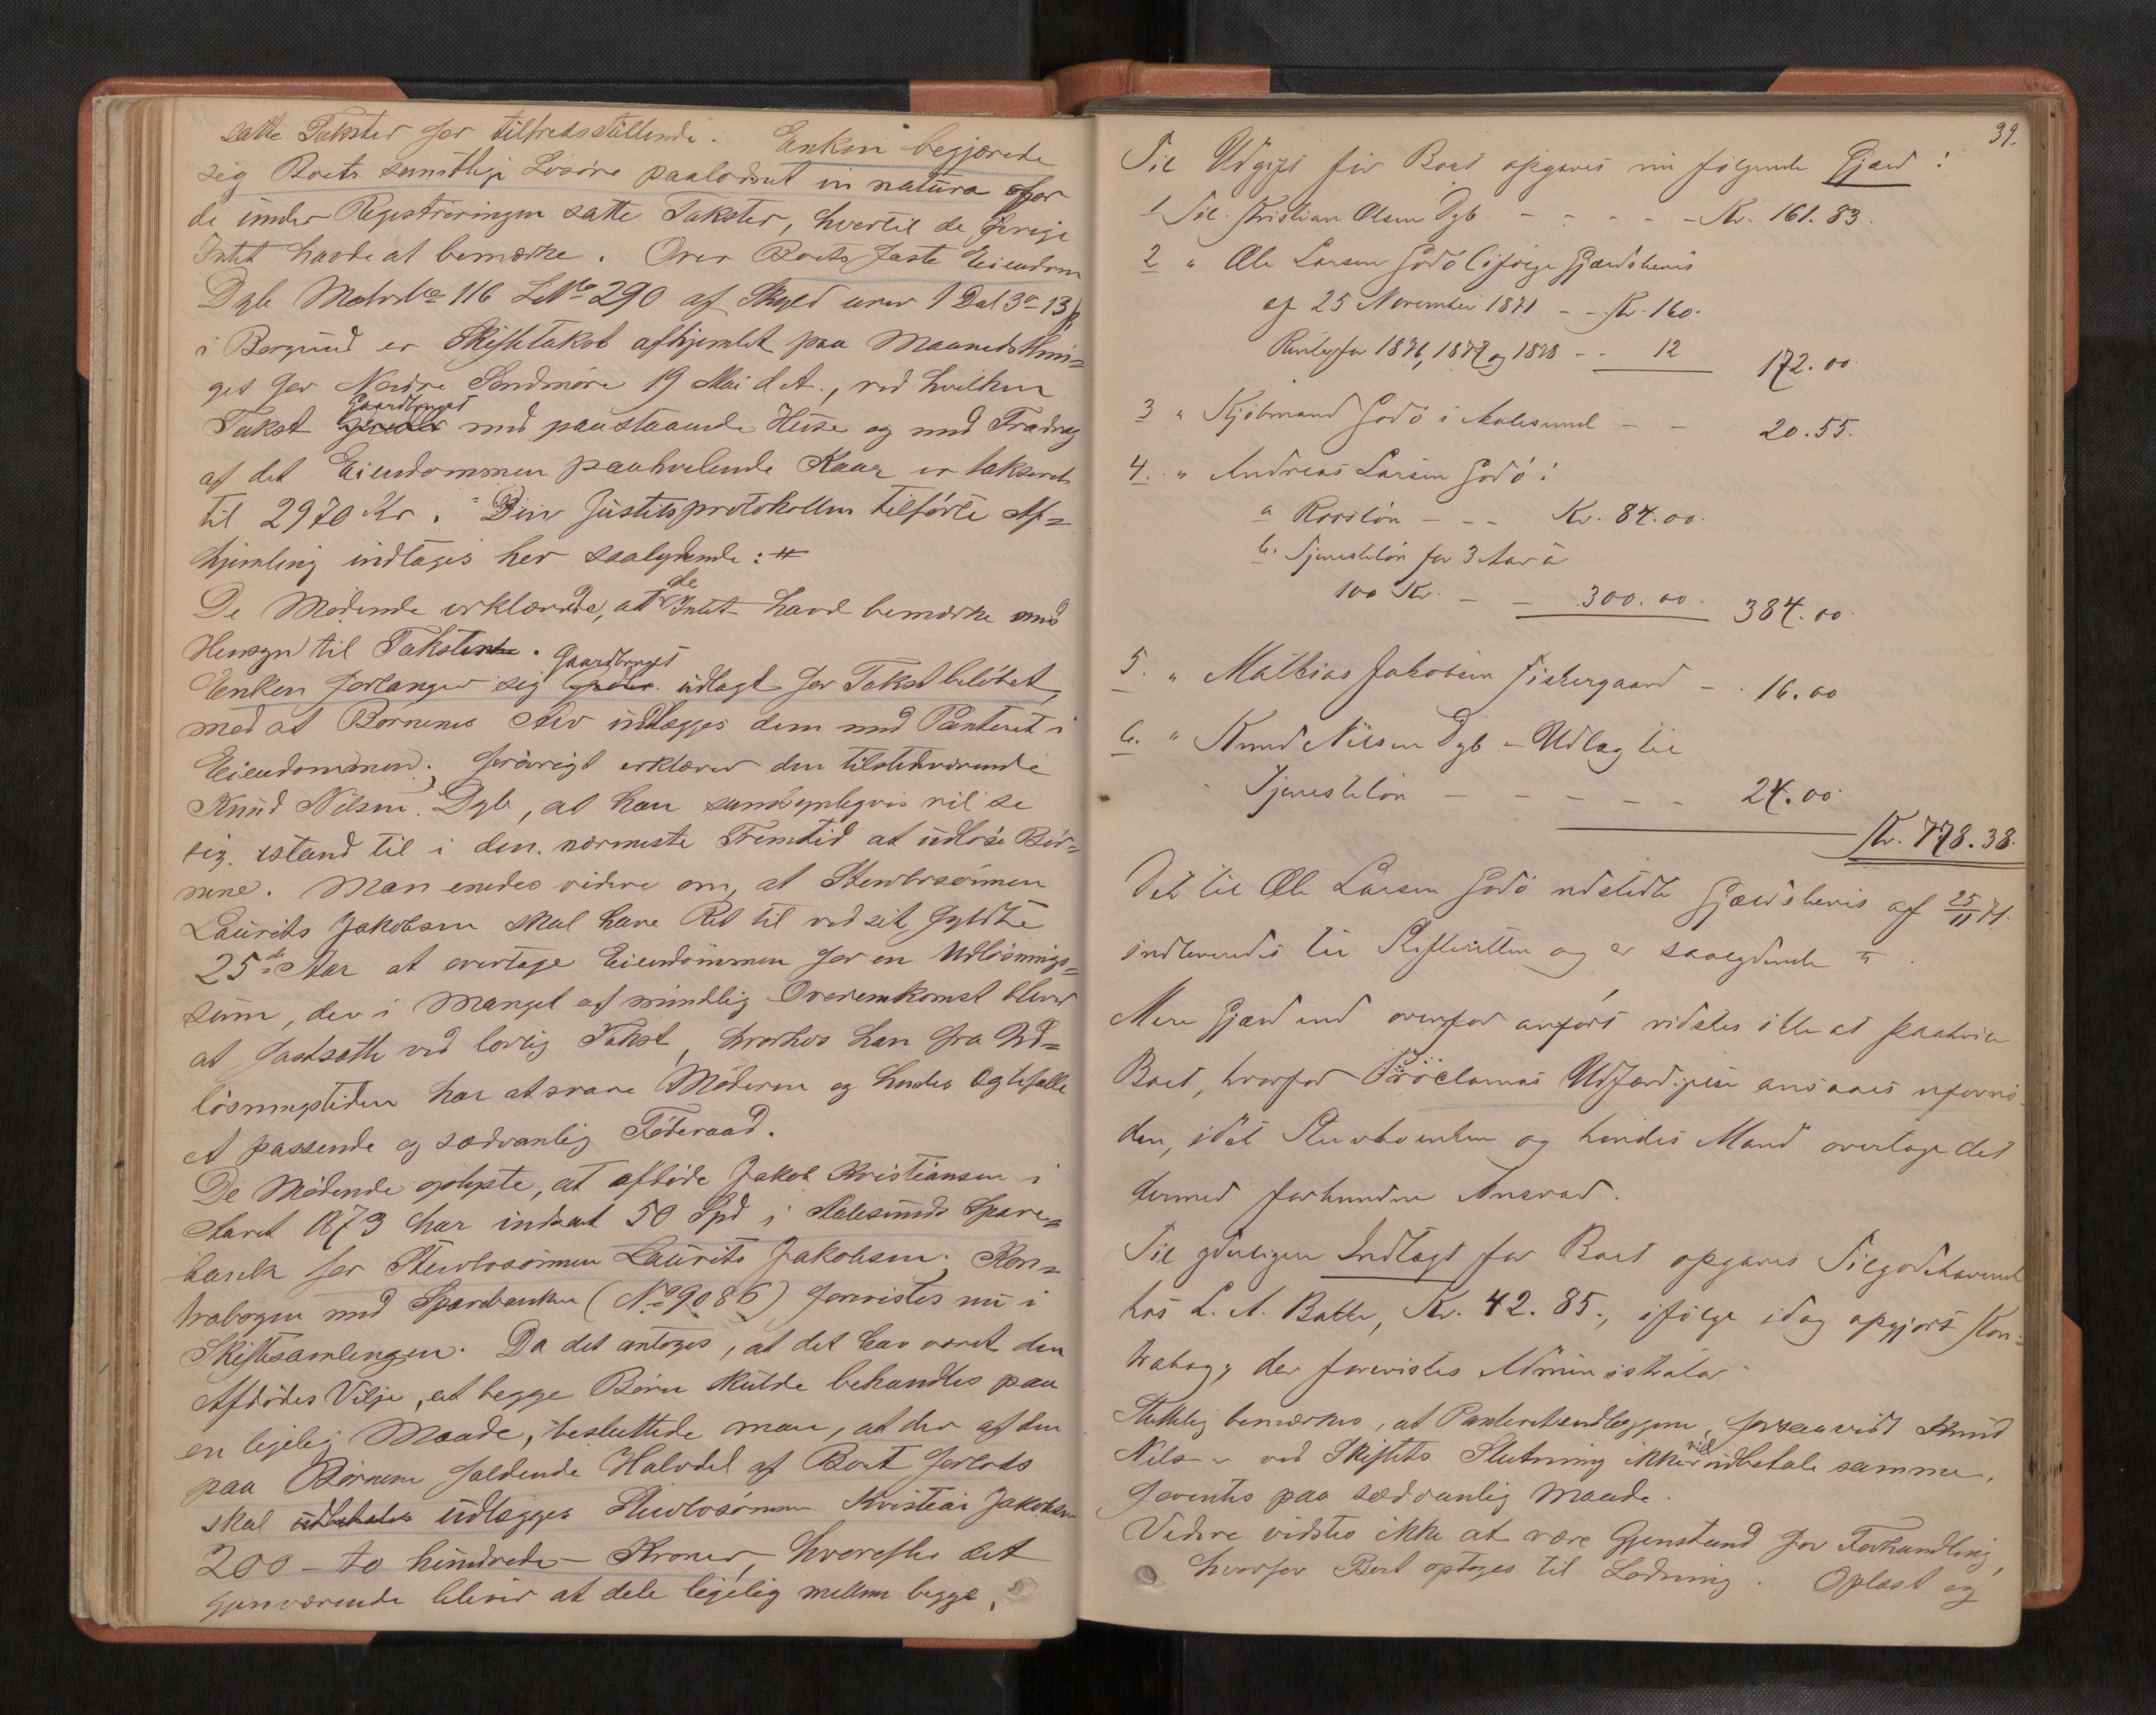 satte Takster for tilfredsstillende. Enken begjærede
sig Boets samtlige Løsøre paaloddet in natura for
de under Registreringen satte Takster, hvortil de øvrige
Intet havde at bemærke. Over Boets faste Eiendom
Dyb Matr No 116 L No 290 af Skyld urev 1 Dal 3 o 13 β
i Borgund er Skiftetakst afhjemlet paa Maanedsthin=
get for Nordre Søndmøre 19 Mai d. A., ved hvilken
Takst Gaardbruget med paastaaende Huse og med Fradrag
af det Eiendommen paahvilende Kaar er takseret
til 2970 Kr. Den Justitsprotokollen tilførte Af=
hjemling indtages her saalydende: #
De Mødende erklærede, at de Intet havde bemærke med
Hensyn til Taksten.
Enken forlanger sig Gaardbruget udlagt for Takstbeløbet,
mod at Børnenes Arv udlægges dem med Panteret i
Eiendommen; forøvrigt erklærer den tilstedeværende
Knud Nilsen Dyb, at han sandsynligvis vil se
sig istand til i den nærmeste Fremtid at udløse Bør=
nene. Man enedes videre om, at Stervbosønnen
Laurits Jakobsen skal have Ret til ved sit fyldte
25de Aar at overtage Eiendommen for en Udløsnings=
sum, der i Mangel af mindlig Overenkomst bliver
at fastsætte ved lovlig Takst, hvorhos han fra Ud=
løsningstiden har at svare Moderen og hendes Ægtefælle
et passende og sædvanlig Føderaad.
De Mødende oplyste, at afdøde Jakob Kristiansen i
Aaret 1873 har indsat 50 Spd i Aalesunds Spare=
bank for Stervbosønnen Laurits Jakobsen. Kon=
trabogen med Sparebanken (No 9086) forevistes nu i
Skiftesamlingen. Da det antoges, at det har været den
Afdødes Vilje, at begge Børn skulde behandles paa
en ligelig Maade, besluttede man, at der af den
paa Børnene faldende Halvdel af Boet forlods
skal udbetales udlægges Stervbosønnen Kristian Jakobsen
200 – to hundrede – Kroner, hvorefter det
gjenværende bliver at dele ligelig mellem begge.
39.
Til Udgift for Boet opgaves nu følgende Gjæld:
1 Til Kristian Olsen Dyb - - - - - Kr. 161.83.
2 " Ole Larsen Godø ifølge Gjældsbevis
af 25 November 1871 - - Kr. 160.
Renter for 1876, 1877 og 1878 - - 12 172.00
3 " Kjøbmand Godø i Aalesund - - 20.55.
4. " Andreas Larsen Godø:
a Rorsløn - - - Kr. 84.00.
b. Tjenesteløn for 3 Aar à
100 Kr. - - 300.00. 384.00.
5. " Mathias Jakobsen Fiskergaard - . 16.00
6. " Knud Nilsen Dyb - Udlæg til
Tjenesteløn - - - - - - 24.00
Kr. 778.38.
Det til Ole Larsen Godø udstedte Gjældsbevis af 25/11 71.
indleveredes til Skifteretten og er saalydende #.
Mere Gjæld end ovenfor anført vidstes ikke at paahvile
Boet, hvorfor Proclamas Udfærdigelse ansaaes ufornø-
den, idet Stervboenken og hendes Mand overtage det
dermed forbundne Ansvar.
Til yderligere Indtægt for Boet opgaves Tilgodehavende
hos L. A. Kr. 42.85., ifølge idag opgjort Kon=
trabog, der forevistes Administrator
Sluttelig bemærkes, at Panteretsudlæggene, forsaavidt Knud
Nilsen ved Skiftets Slutning ikke vil udbetale samme,
forrentes paa sædvanlig Maade.
Videre vidstes ikke at være Gjenstand for Forhandling,
hvorfor Boet optoges til Lodning. Oplæst og